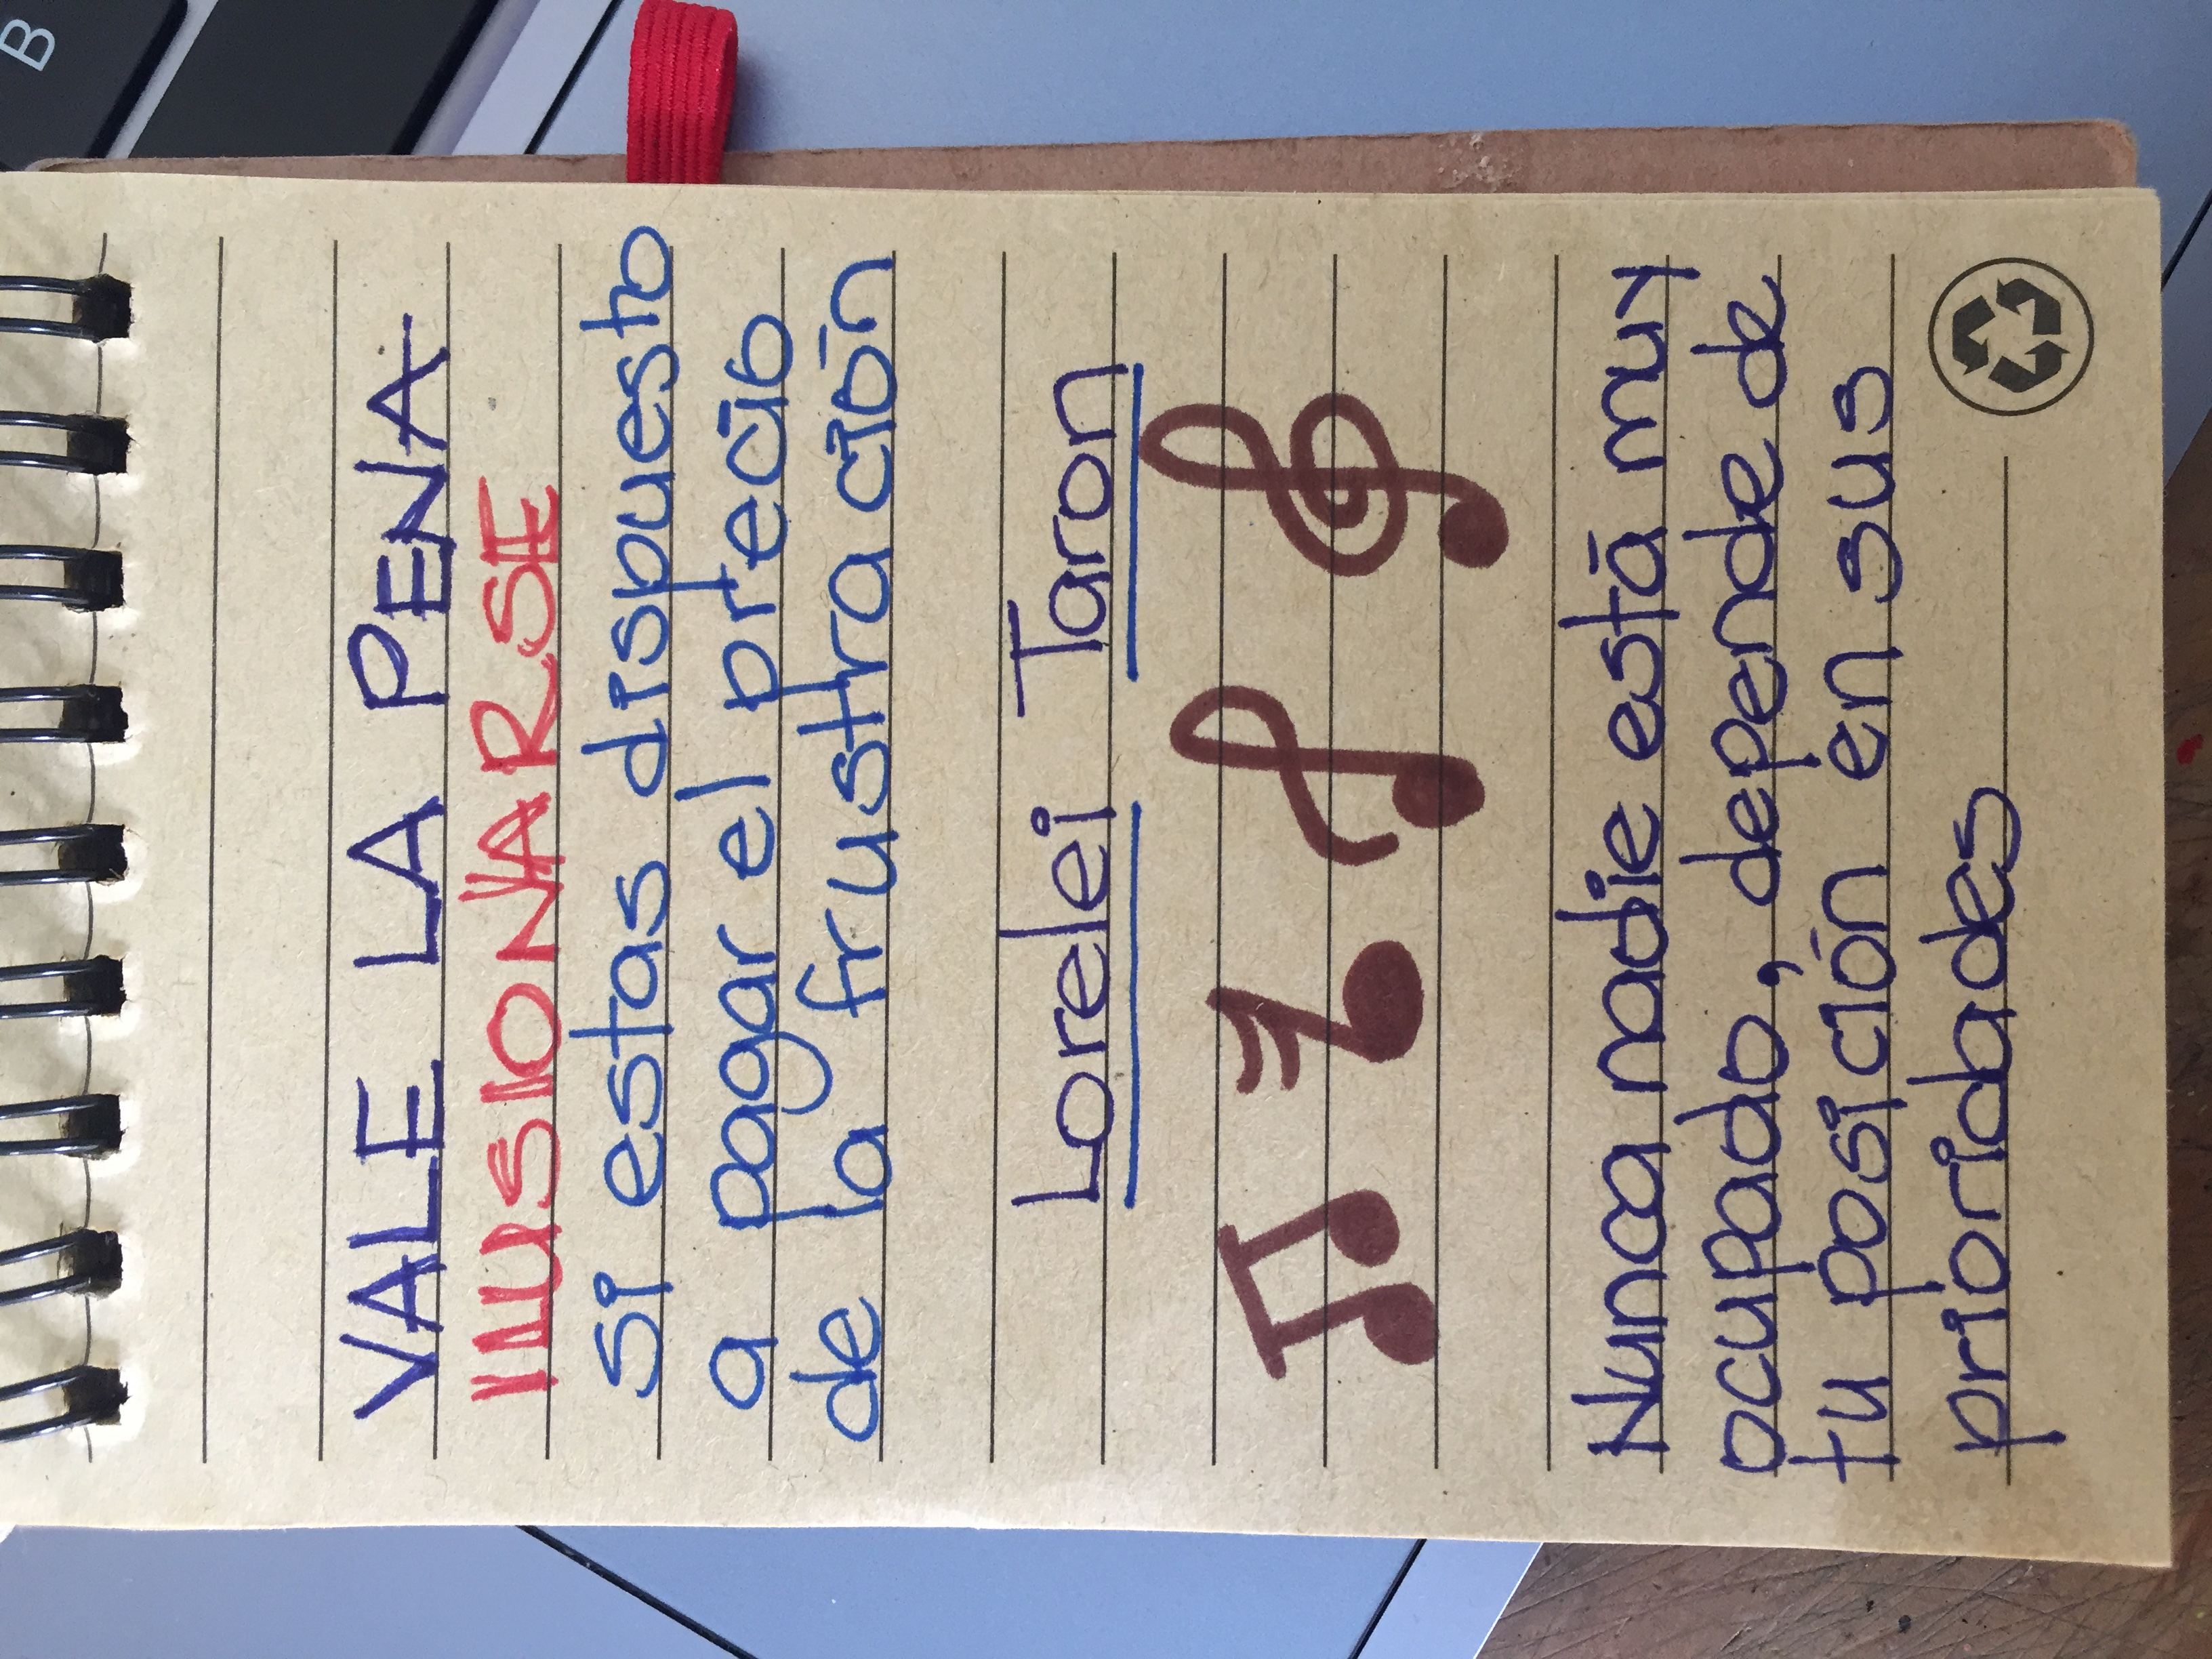 B
VALE LA PENA
ILUSIONARSE
si estas dispuesto
a pagar el precio
de la frustración
Lorelei Taron
Nunca nadie está muy
ocupado, depende de
tu posición en sus
prioridades